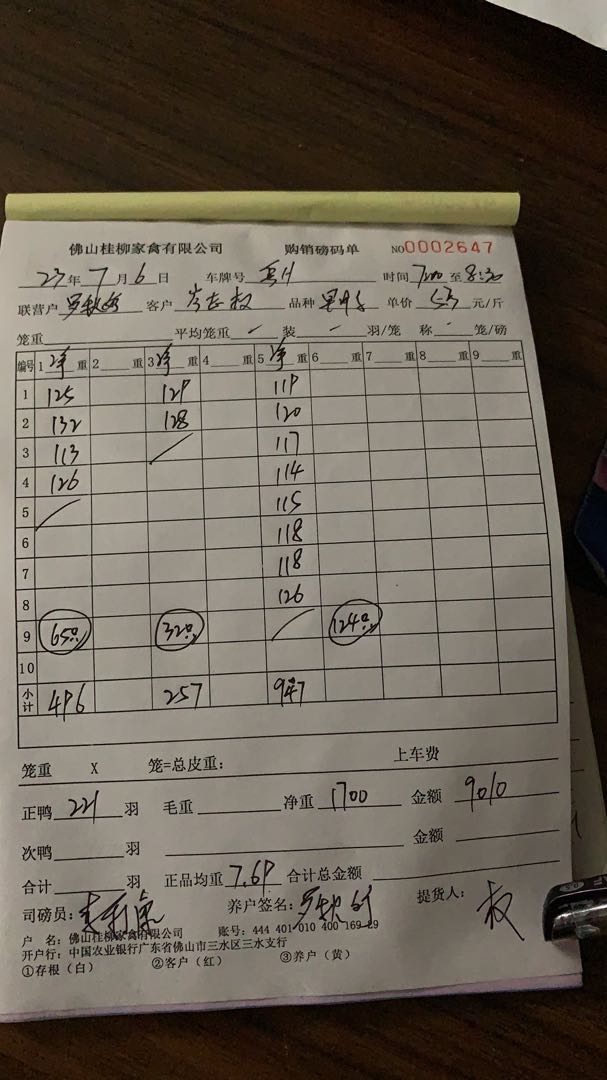 佛山桂柳家禽有限公司 购销磅码单 NO0002647
23年7月6日 车牌号 时间7:00至8:30
联营户 罗秋 客户 岑志权 品种 单价5.3元/斤
笼重 平均笼重 — 装 — 羽/笼 称 - 笼/磅
编号 1净重 2 重 3净重 4 重 5净重 6 重 7 重 8 重 9 重
1 125 129 119
2 132 128 120
3 113 117
4 126 114
5 115
6 118
7 118
8 126
9 65 32 124
10
小计 496 257 947
笼重 X 笼=总皮重: 上车费
正鸭 221 羽 毛重 净重 1700 金额 9010
次鸭 羽 金额
合计 羽 正品均重 7.69 合计总金额
司磅员: 养户签名: 罗秋 提货人: 权
户 名: 佛山桂柳家禽有限公司 账号: 444 401 010 400 169 29
开户行: 中国农业银行广东省佛山市三水区三水支行
①存根（白） ②客户（红） ③养户（黄）